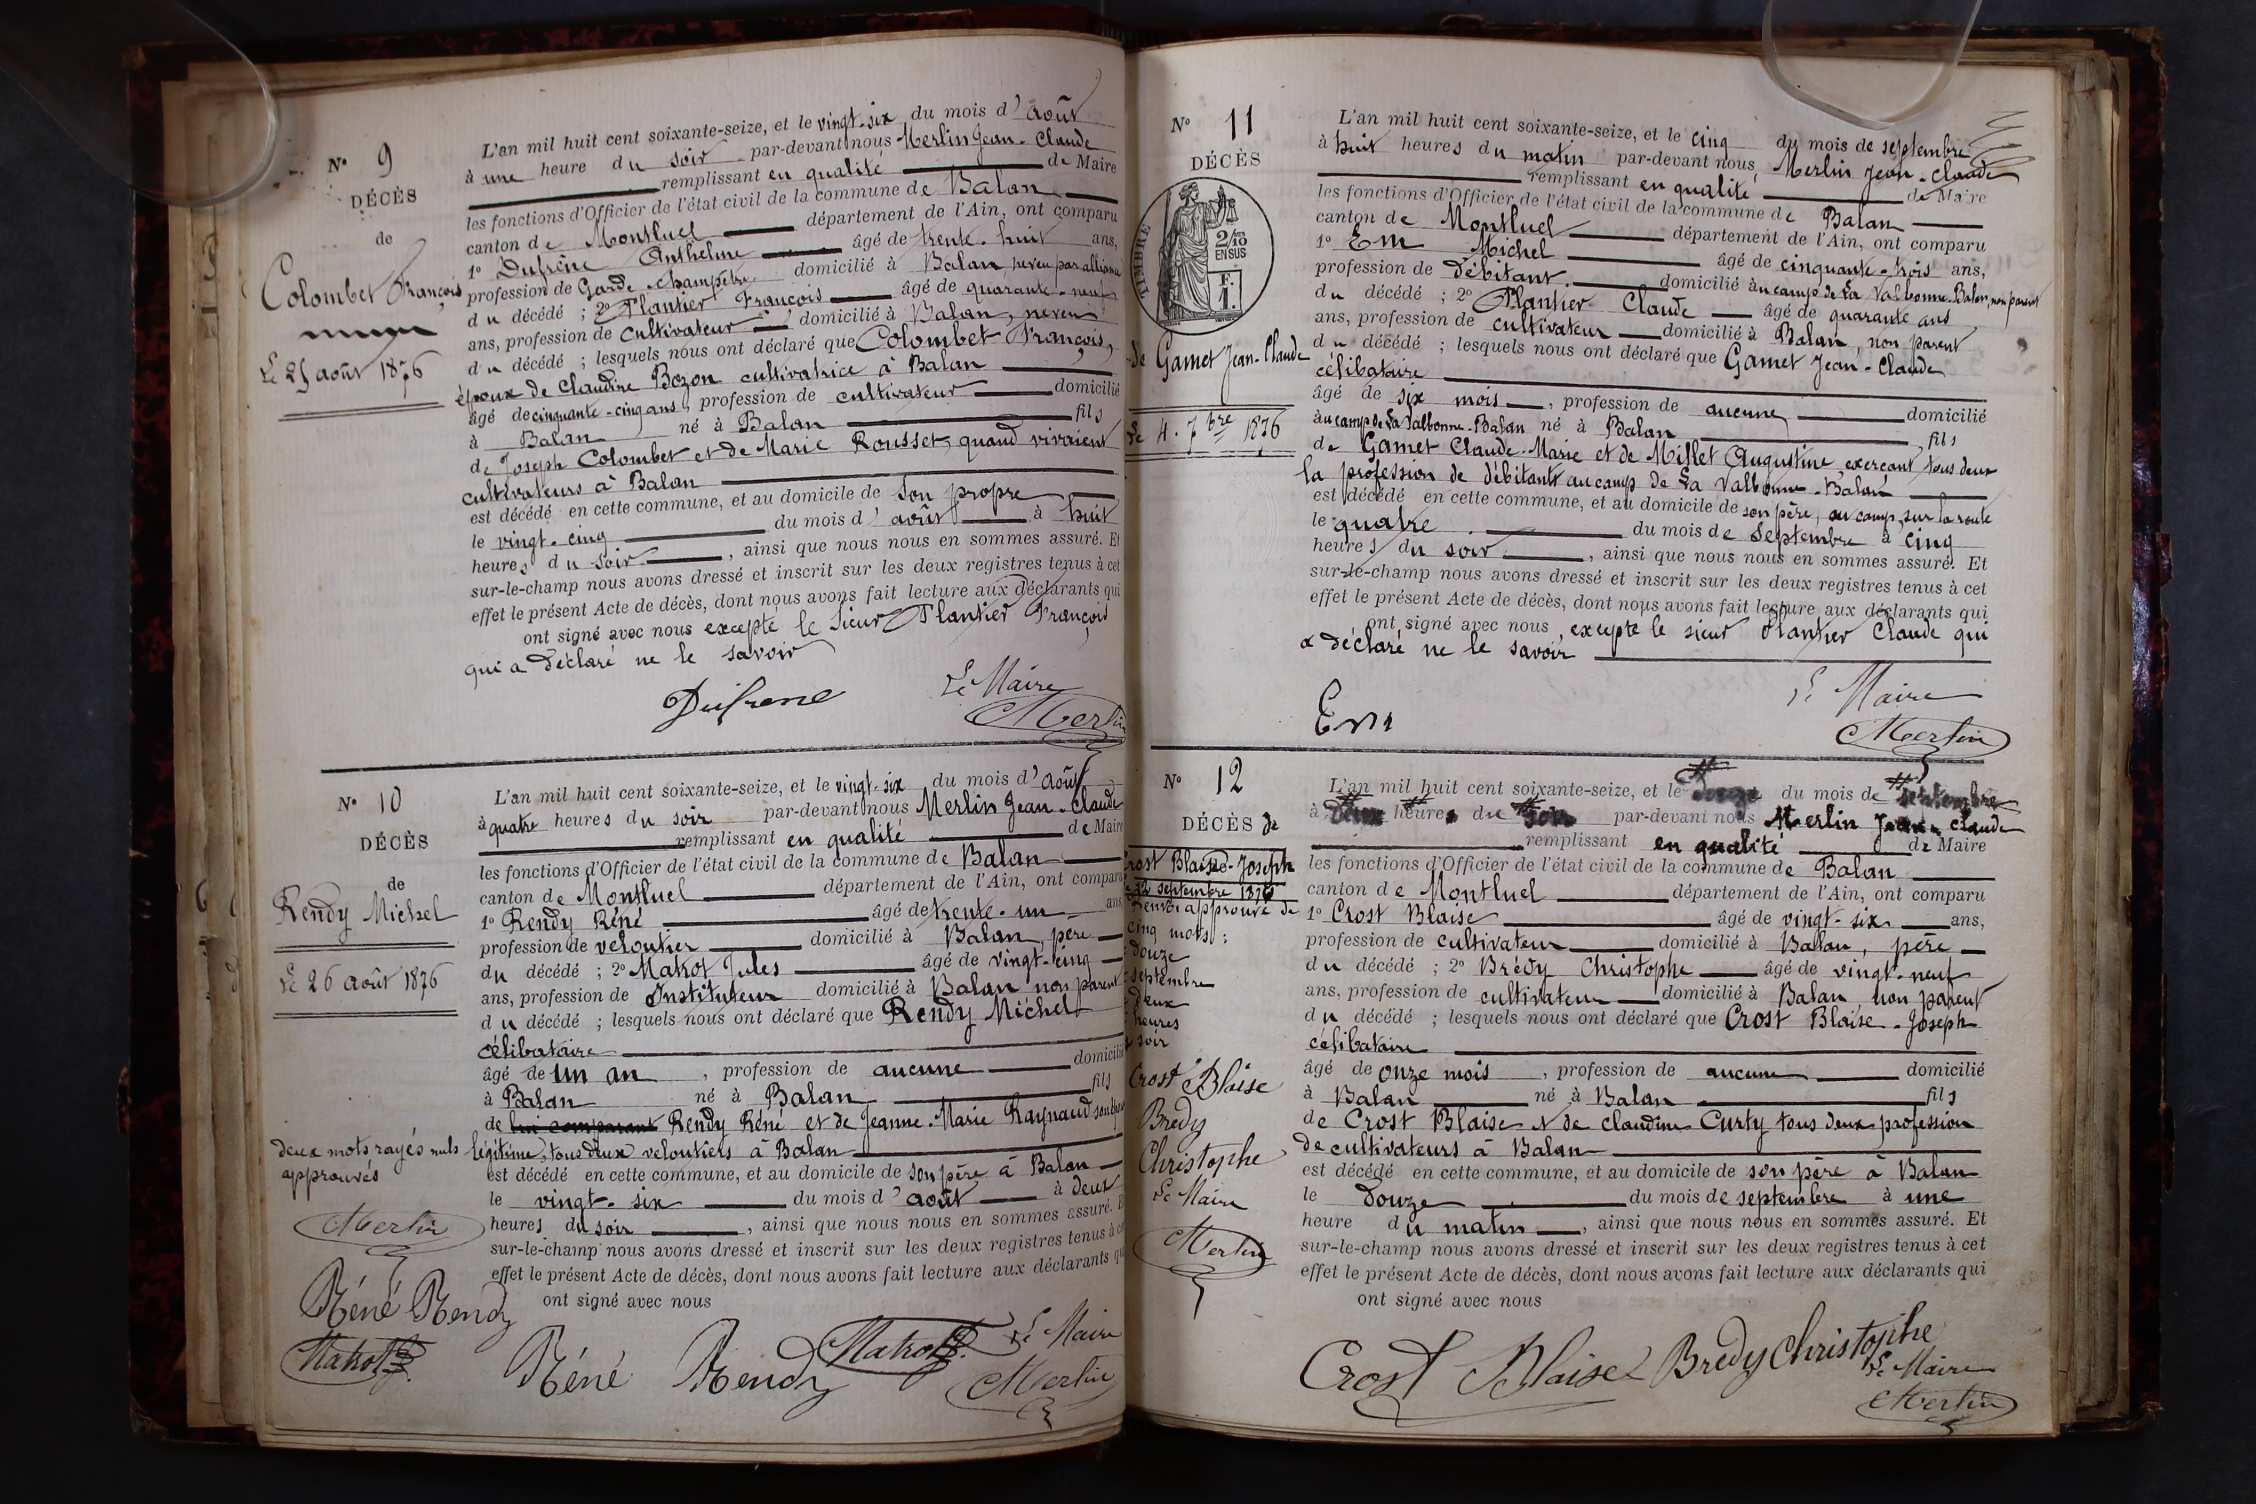 N° 9
DÉCÈS
de
Colombet François
Le 25 août 1876
L'an mil huit cent soixante-seize, et le vingt-six du mois d'août
à une heure du soir par-devant nous Merlin Jean-Claude
remplissant en qualité de Maire
les fonctions d'Officier de l'état civil de la commune de Balan
canton de Montluel département de l'Ain, ont comparu
1° Dufrêne Anthelme âgé de trente-huit ans,
profession de Garde-champêtre domicilié à Balan neveu par alliance
du décédé ; 2° Plantier François âgé de quarante-neuf
ans, profession de cultivateur domicilié à Balan, neveu
du décédé ; lesquels nous ont déclaré que Colombet François,
époux de Claudine Bozon cultivatrice à Balan
âgé de cinquante-cinq ans, profession de cultivateur domicilié
à Balan né à Balan fils
de Joseph Colombet et de Marie Rousset, quand vivaient
cultivateurs à Balan
est décédé en cette commune, et au domicile de son propre
le vingt-cinq du mois d'août à huit
heures du soir, ainsi que nous nous en sommes assuré. Et
sur-le-champ nous avons dressé et inscrit sur les deux registres tenus à cet
effet le présent Acte de décès, dont nous avons fait lecture aux déclarants qui
ont signé avec nous excepté le sieur Plantier François
qui a déclaré ne le savoir
Dufrene
Le Maire
Merlin
N° 10
DÉCÈS
de
Rendy Michel
Le 26 août 1876
deux mots rayés nuls
approuvés
Merlin
Réné Rendy
Matrot
L'an mil huit cent soixante-seize, et le vingt-six du mois d'août
à quatre heures du soir par-devant nous Merlin Jean-Claude
remplissant en qualité de Maire
les fonctions d'Officier de l'état civil de la commune de Balan
canton de Montluel département de l'Ain, ont comparu
1° Rendy Réné âgé de trente-un ans
profession de veloutier domicilié à Balan, père
du décédé ; 2° Matrot Jules âgé de vingt-cinq
ans, profession de Instituteur domicilié à Balan non parent
du décédé ; lesquels nous ont déclaré que Rendy Michel
célibataire
âgé de un an, profession de aucune domicilié
à Balan né à Balan fils
de lui comparant Rendy Réné et de Jeanne-Marie Raynaud son épouse
légitime, tous deux veloutiers à Balan
est décédé en cette commune, et au domicile de son père à Balan
le vingt-six du mois d'août à deux
heures du soir, ainsi que nous nous en sommes assuré. Et
sur-le-champ nous avons dressé et inscrit sur les deux registres tenus à cet
effet le présent Acte de décès, dont nous avons fait lecture aux déclarants qui
ont signé avec nous
Réné Rendy Matrot
Le Maire
Merlin
N° 11
DÉCÈS
TIMBRE
2/10
EN SUS
F.
1.
de Gamet Jean-Claude
Le 4. 7bre 1876
L'an mil huit cent soixante-seize, et le cinq du mois de septembre
à huit heures du matin par-devant nous, Merlin Jean-Claude
remplissant en qualité de Maire
les fonctions d'Officier de l'état civil de la commune de Balan
canton de Montluel département de l'Ain, ont comparu
1° Em Michel âgé de cinquante-trois ans,
profession de débitant domicilié au camp de La Valbonne-Balan, non parent
du décédé ; 2° Plantier Claude âgé de quarante ans
ans, profession de cultivateur domicilié à Balan, non parent
du décédé ; lesquels nous ont déclaré que Gamet Jean-Claude
célibataire
âgé de six mois, profession de aucune domicilié
au camp de La Valbonne-Balan né à Balan, fils
de Gamet Claude-Marie et de Millet Augustine exerçant tous deux
la profession de débitants au camp de La Valbonne-Balan
est décédé en cette commune, et au domicile de son père, au camp, sur la route
le quatre du mois de Septembre à cinq
heures du soir, ainsi que nous nous en sommes assuré. Et
sur-le-champ nous avons dressé et inscrit sur les deux registres tenus à cet
effet le présent Acte de décès, dont nous avons fait lecture aux déclarants qui
ont signé avec nous excepté le sieur Plantier Claude qui
a déclaré ne le savoir
Em
Le Maire
Merlin
N° 12
DÉCÈS de
Crost Blaise-Joseph
12 septembre 1876
Renvoi approuvé de
cinq mots :
douze
septembre
deux
heures
soir
Crost Blaise
Bredy
Christophe
Le Maire
Merlin
L'an mil huit cent soixante-seize, et le douze du mois de septembre
à deux heures du soir par-devant nous Merlin Jean-Claude
remplissant en qualité de Maire
les fonctions d'Officier de l'état civil de la commune de Balan
canton de Montluel département de l'Ain, ont comparu
1° Crost Blaise âgé de vingt-six ans,
profession de cultivateur domicilié à Balan, père
du décédé ; 2° Brédy Christophe âgé de vingt-neuf
ans, profession de cultivateur domicilié à Balan, non parent
du décédé ; lesquels nous ont déclaré que Crost Blaise-Joseph
célibataire
âgé de onze mois, profession de aucune domicilié
à Balan né à Balan fils
de Crost Blaise & de Claudine Curty tous deux profession
de cultivateurs à Balan
est décédé en cette commune, et au domicile de son père à Balan
le douze du mois de septembre à une
heure du matin, ainsi que nous nous en sommes assuré. Et
sur-le-champ nous avons dressé et inscrit sur les deux registres tenus à cet
effet le présent Acte de décès, dont nous avons fait lecture aux déclarants qui
ont signé avec nous
Crost Blaise Bredy Christophe
Le Maire
Merlin